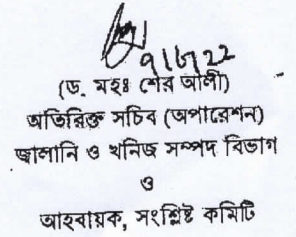 ৭।৮।22
(ড. মহঃ শের আলী)
অতিরিক্ত সচিব (অপারেশন)
জ্বালানি ও খনিজ সম্পদ বিভাগ
ও
আহবায়ক, সংশ্লিষ্ট কমিটি